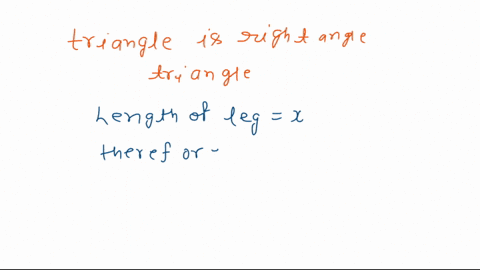 triangle is right angle
triangle
Length of leg = x
theref or